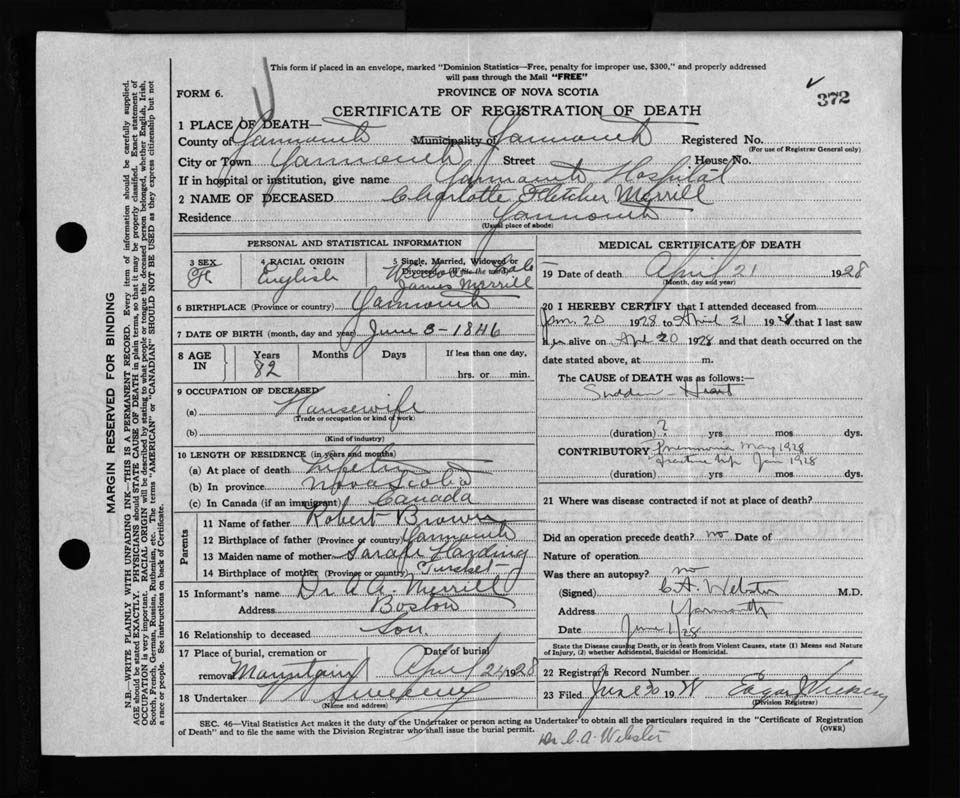 This form if placed in an envelope, marked "Dominion Statistics—Free, penalty for improper use, $300," and properly addressed
will pass through the Mail "FREE"
FORM 6.
PROVINCE OF NOVA SCOTIA
372
CERTIFICATE OF REGISTRATION OF DEATH
1 PLACE OF DEATH—
County of Yarmouth Municipality of Yarmouth Registered No.
(For use of Registrar General only)
City or Town Yarmouth Street House No.
If in hospital or institution, give name Yarmouth Hospital
2 NAME OF DECEASED Charlotte Fletcher Merrill
Residence Yarmouth
(Usual place of abode)
PERSONAL AND STATISTICAL INFORMATION
3 SEX F
4 RACIAL ORIGIN English
5 Single, Married, Widowed or
Divorced (Write the word) Widow
James Merrill
6 BIRTHPLACE (Province or country) Yarmouth
7 DATE OF BIRTH (month, day and year) June 3-1846
8 AGE IN Years 82 Months Days If less than one day,
hrs. or min.
9 OCCUPATION OF DECEASED
(a) Housewife
(Trade or occupation or kind of work)
(b)
(Kind of industry)
10 LENGTH OF RESIDENCE (in years and months)
(a) At place of death
(b) In province Nova Scotia
(c) In Canada (if an immigrant) Canada
Parents
11 Name of father Robert Brown
12 Birthplace of father (Province or country) Yarmouth
13 Maiden name of mother Sarah Harding
14 Birthplace of mother (Province or country) Tusket
15 Informant's name Dr A.A. Merrill
Address Boston
16 Relationship to deceased Son.
17 Place of burial, cremation or Date of burial
removal Mountain April 24 1928
18 Undertaker Sweeney
(Name and address)
MEDICAL CERTIFICATE OF DEATH
19 Date of death April 21 1928
(Month, day and year)
20 I HEREBY CERTIFY that I attended deceased from
Jan 20 1928 to April 21 1928 that I last saw
h er alive on Apl 20 1928 and that death occurred on the
date stated above, at m.
The CAUSE of DEATH was as follows:—
Sudden - Heart
(duration) ? yrs mos dys.
CONTRIBUTORY Pneumonia May 1928
Fracture hip Jan 1928
(duration) yrs mos dys.
21 Where was disease contracted if not at place of death?
Did an operation precede death? no Date of
Nature of operation
Was there an autopsy? no
(Signed) C A. Webster M.D.
Address Yarmouth
Date June 1/28
State the Disease causing Death, or in death from Violent Causes, state (1) Means and Nature
of Injury, (2) whether Accidental, Suicidal or Homicidal.
22 Registrar's Record Number
23 Filed June 30 1928 Edgar J Vickery
(Division Registrar)
SEC. 46—Vital Statistics Act makes it the duty of the Undertaker or person acting as Undertaker to obtain all the particulars required in the "Certificate of Registration
of Death" and to file the same with the Division Registrar who shall issue the burial permit.
(OVER)
Dr. C. A. Webster
MARGIN RESERVED FOR BINDING
N.B.—WRITE PLAINLY WITH UNFADING INK—THIS IS A PERMANENT RECORD. Every item of information should be carefully supplied.
AGE should be stated EXACTLY. PHYSICIANS should STATE CAUSE OF DEATH in plain terms, so that it may be properly classified. Exact statement of
OCCUPATION is very important. RACIAL ORIGIN will be described by stating to what people or tongue the deceased person belonged, whether English, Irish,
Scotch, French, German, Russian, Ruthenian, etc. The terms "AMERICAN" or "CANADIAN" SHOULD NOT BE USED as they express citizenship but not
a race or people. See instructions on back of Certificate.